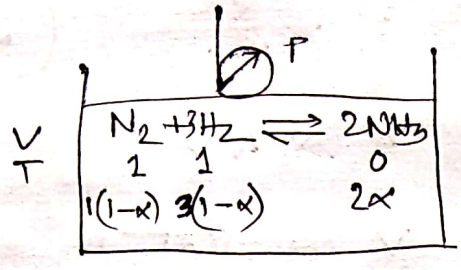 P
V N₂ + 3H₂ ⇌ 2NH₃
T 1 1 0
1(1-α) 3(1-α) 2α